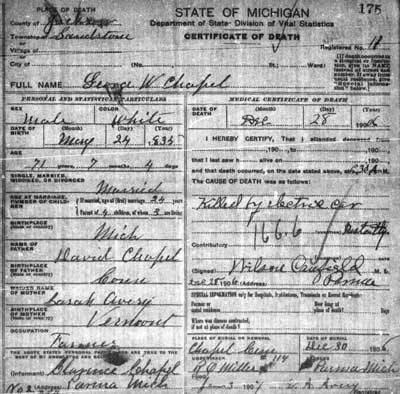 PLACE OF DEATH
STATE OF MICHIGAN
175
County of Jackson
Department of State- Division of Vital Statistics
Township of Sandstone
CERTIFICATE OF DEATH
Village of
Registered No. 18
City of
(No. St.; Ward)
FULL NAME George W. Chapel
PERSONAL AND STATISTICAL PARTICULARS
MEDICAL CERTIFICATE OF DEATH
SEX
COLOR
Male
White
DATE OF DEATH
(Month) (Day) (Year)
Dec 28 1906
DATE OF BIRTH
(Month) (Day) (Year)
May 24 1835
I HEREBY CERTIFY, That I attended deceased from
AGE
71 7 4 days
that I last saw h alive on 190
and that death occurred, on the date stated above, at M.
The CAUSE OF DEATH was as follows:
SINGLE, MARRIED, WIDOWED, OR DIVORCED
Married
Killed by electric car
AGE OF MARRIAGE, NUMBER OF CHILDREN
If Married, age at (first) marriage 24 years
Parent of 4 children, of whom 3 are living
166.6
Instantly
BIRTHPLACE
Mich
Contributory
NAME OF FATHER
David Chapel
(Signed) Wilson Canfield M. D.
Dec 28 1906 (Address) Parma
BIRTHPLACE OF FATHER
Conn
MAIDEN NAME OF MOTHER
Sarah Avery
SPECIAL INFORMATION only for Hospitals, Institutions, Transients or Recent Residents
Former or usual residence
How long at place of death? Days
BIRTHPLACE OF MOTHER
Vermont
Where was disease contracted, if not at place of death?
OCCUPATION
Farmer
PLACE OF BURIAL OR REMOVAL
DATE OF BURIAL
Chapel Cem
Dec 30 1906
THE ABOVE STATED PERSONAL PARTICULARS ARE TRUE TO THE BEST OF MY KNOWLEDGE AND BELIEF
(Informant) Clarence Chapel
Parma Mich
UNDERTAKER
114
Miller
Parma Mich
Jan 3 1907
Avery